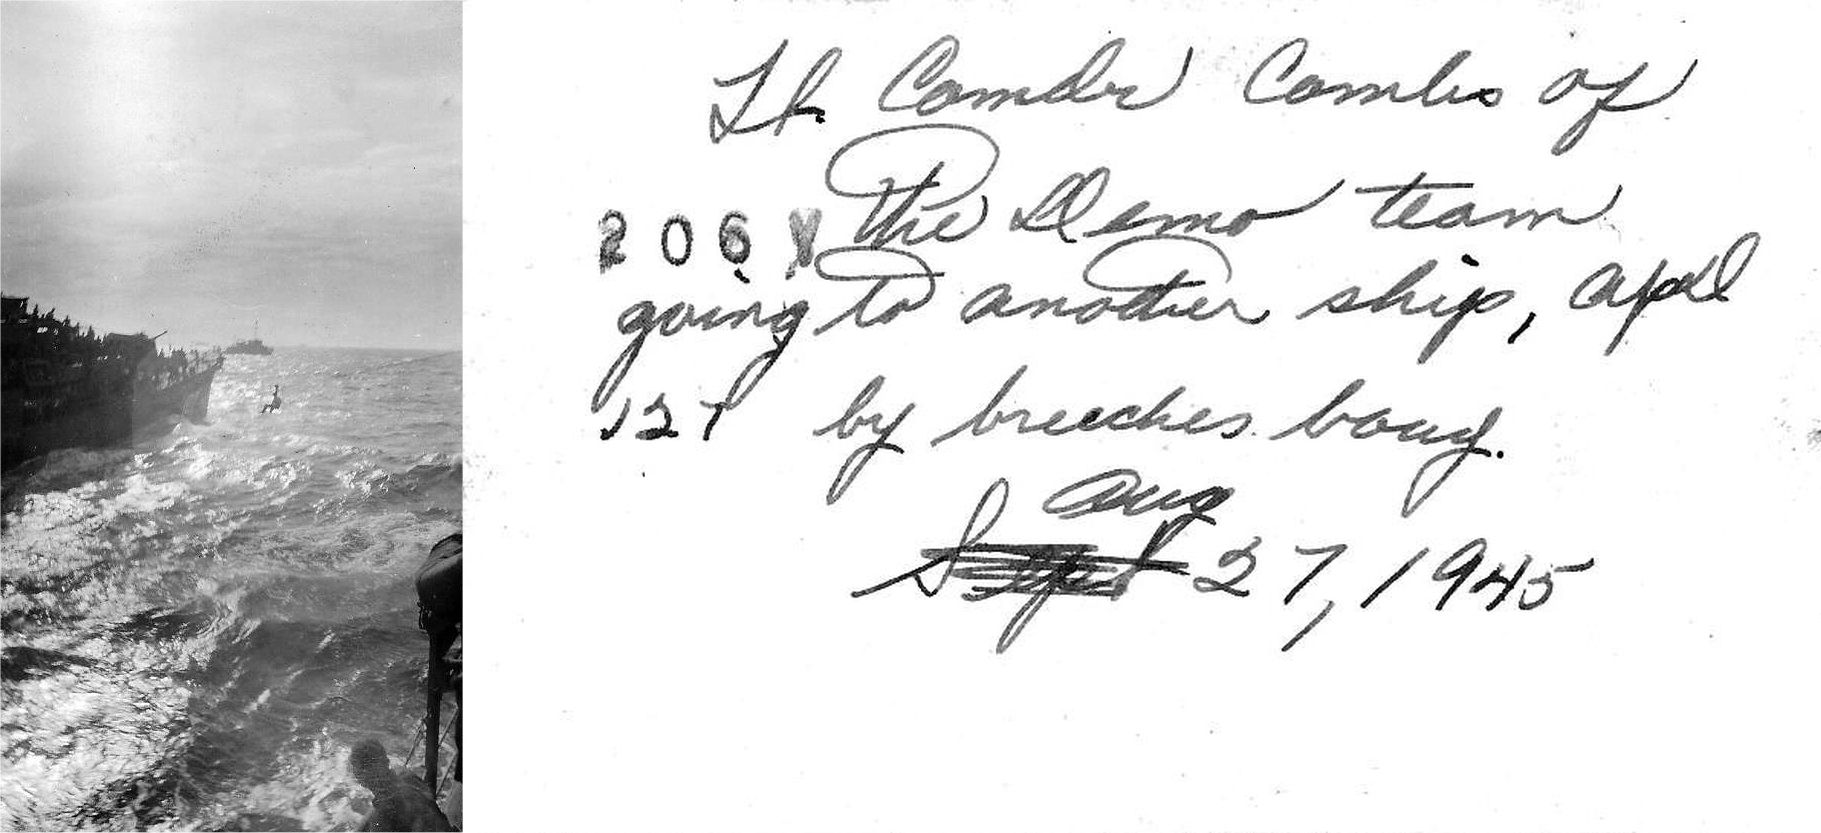 Lt. Comdr Combs of
206 the Demo team
going to another ship, apd
127 by breeches bouy.
Aug
Sept 27, 1945